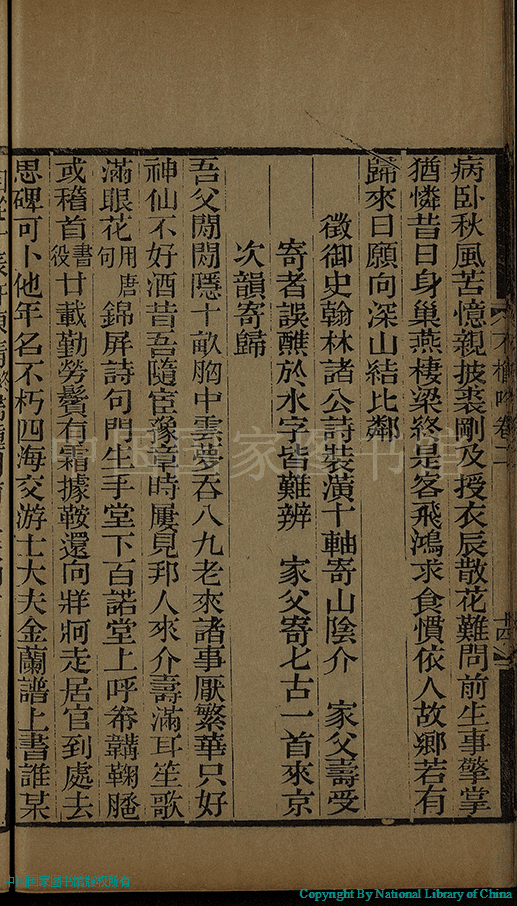 病卧秋風苦憶親披裘剛及授衣辰散花難問前生事擎掌
猶憐昔日身巢燕棲梁終是客飛鴻求食慣依人故鄉若有
歸來日願向深山結比鄰
徵御史翰林諸公詩裝潢十軸寄山陰介 家父壽受
寄者誤醮於水字皆難辨 家父寄七古一首來京
次韻寄歸
吾父閒閒隱十畝胸中雲夢吞八九老來諸事厭繁華只好
神仙不好酒昔吾隨宦豫章時屢見邦人來介壽滿耳笙歌
滿眼花用唐句錦屏詩句門生手堂下百諾堂上呼帣韝鞠
或稽首書役廿載勤勞鬢有霜據鞍還向牂牁走居官到處去
思碑可卜他年名不朽四海交游士大夫金蘭譜上書誰某
卷二
十四
中国国家图书馆
Copyright By National Library of China